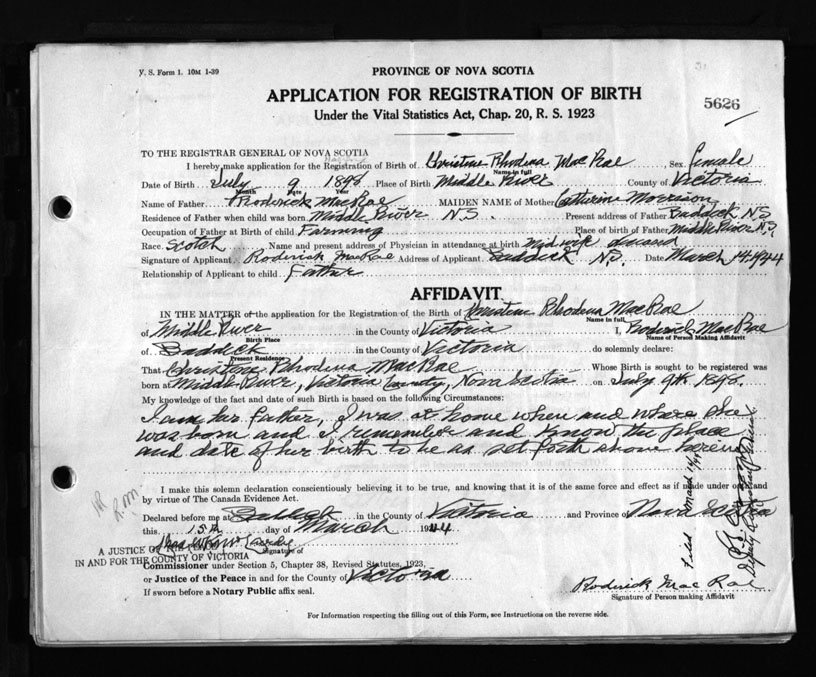 V. S. Form 1. 10M 1-39
PROVINCE OF NOVA SCOTIA
APPLICATION FOR REGISTRATION OF BIRTH
5626
Under the Vital Statistics Act, Chap. 20, R. S. 1923
TO THE REGISTRAR GENERAL OF NOVA SCOTIA
I hereby make application for the Registration of Birth of Christine Rhodena MacRae Sex female
Name in full
Date of Birth July 9 1898 Place of Birth Middle River County of Victoria
Month Date Year
Name of Father Roderick MacRae MAIDEN NAME of Mother Catherine Morrison
Residence of Father when child was born Middle River N.S. Present address of Father Baddeck N.S
Occupation of Father at Birth of child Farming Place of birth of Father Middle River N.S.
Race Scotch Name and present address of Physician in attendance at birth Midwife
Signature of Applicant Roderick MacRae Address of Applicant Baddeck N.S. Date March 14 1944
Relationship of Applicant to child Father
AFFIDAVIT
IN THE MATTER of the application for Registration of the Birth of Christine Rhodena MacRae
Name in full
of Middle River in the County of Victoria I, Roderick MacRae
Birth Place Name of Person Making Affidavit
of Baddeck in the County of Victoria do solemnly declare:
Present Residence
That Christine Rhodena MacRae Whose Birth is sought to be registered was
born at Middle River, Victoria County, Nova Scotia on July 9th 1898.
My knowledge of the fact and date of such Birth is based on the following Circumstances:
I am her father, I was at home when and where she
was born and I remember and know the place
and date of her birth to be as set forth above herein
I make this solemn declaration conscientiously believing it to be true, and knowing that it is of the same force and effect as if made under oath and
by virtue of The Canada Evidence Act.
Declared before me at Baddeck in the County of Victoria and Province of Nova Scotia
this 15th day of March 1944
A JUSTICE OF THE PEACE
IN AND FOR THE COUNTY OF VICTORIA
Signature of
Commissioner under Section 5, Chapter 38, Revised Statutes, 1923,
or Justice of the Peace in and for the County of Victoria
If sworn before a Notary Public affix seal.
Roderick MacRae
Signature of Person making Affidavit
Filed March
For Information respecting the filling out of this Form, see Instructions on the reverse side.